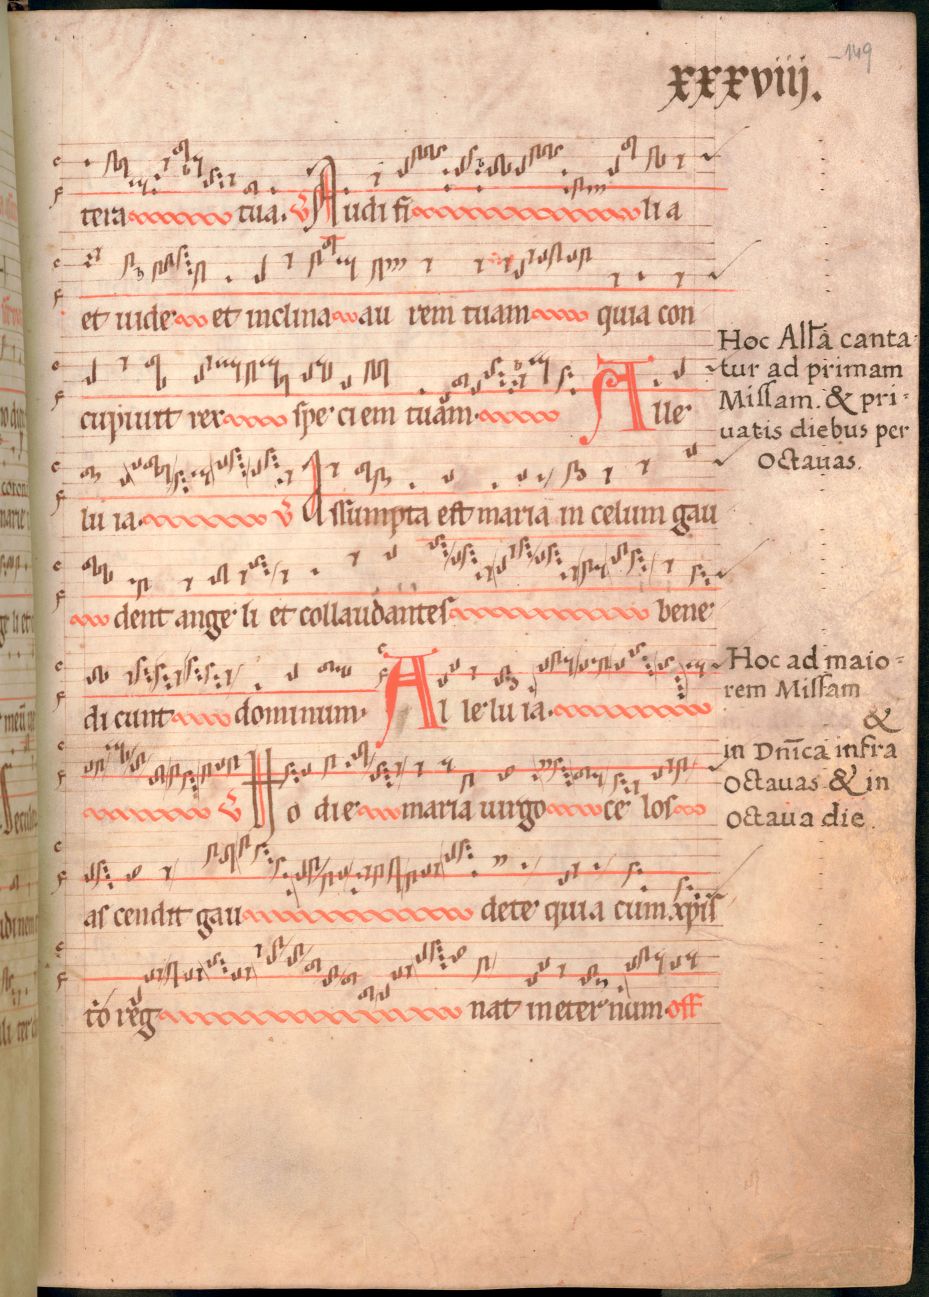 149
xxxviij.
tera tua. v̄ Audi fi lia
et uide et inclina au rem tuam quia con
cupiuit rex spe ci em tuam. Alle
lu ia. v̄ Assumpta est maria in celum gau
dent ange li et collaudantes bene
di cunt dominum. Al le lu ia.
v̄ Ho die maria uirgo ce los
as cendit gau dete quia cum xp̄is
to reg nat in eter num. off
Hoc All'a canta-
tur ad primam
Missam. & pri-
uatis diebus per
Octauas.
Hoc ad maio-
rem Missam
&
in Dn̄ica infra
Octauas & in
octaua die.